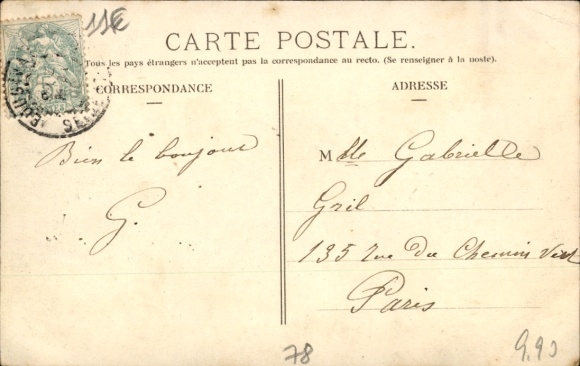 11€
CARTE POSTALE.
Tous les pays étrangers n'acceptent pas la correspondance au recto. (Se renseigner à la poste).
CORRESPONDANCE
ADRESSE
Bien le bonjour
G.
Mlle Gabrielle
Gril
135 Rue du Chemin Vert
Paris
78
9.90